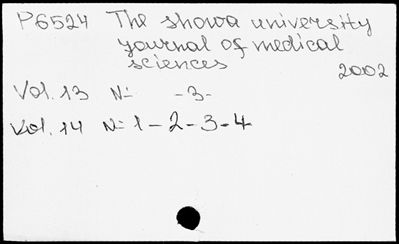 P6524 The showa university
journal of medical
sciences
2002
Vol. 13 N= -3-
Vol. 14 N= 1-2-3-4